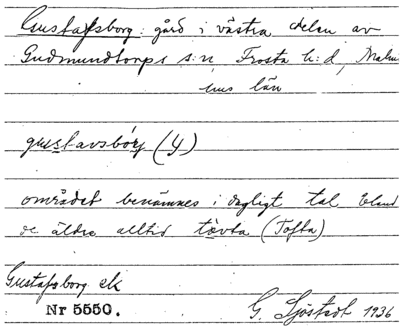 Gustafsborg: gård i västra delen av
Gudmundtorps s:n, Frosta h:d, Malmö
hus län
gustavsbórj (4)
området benämnes i dagligt tal bland
de äldre alltid tòvta (Tofta)
Gustafsborg elk
Nr 5550.
G. Sjöstedt 1936